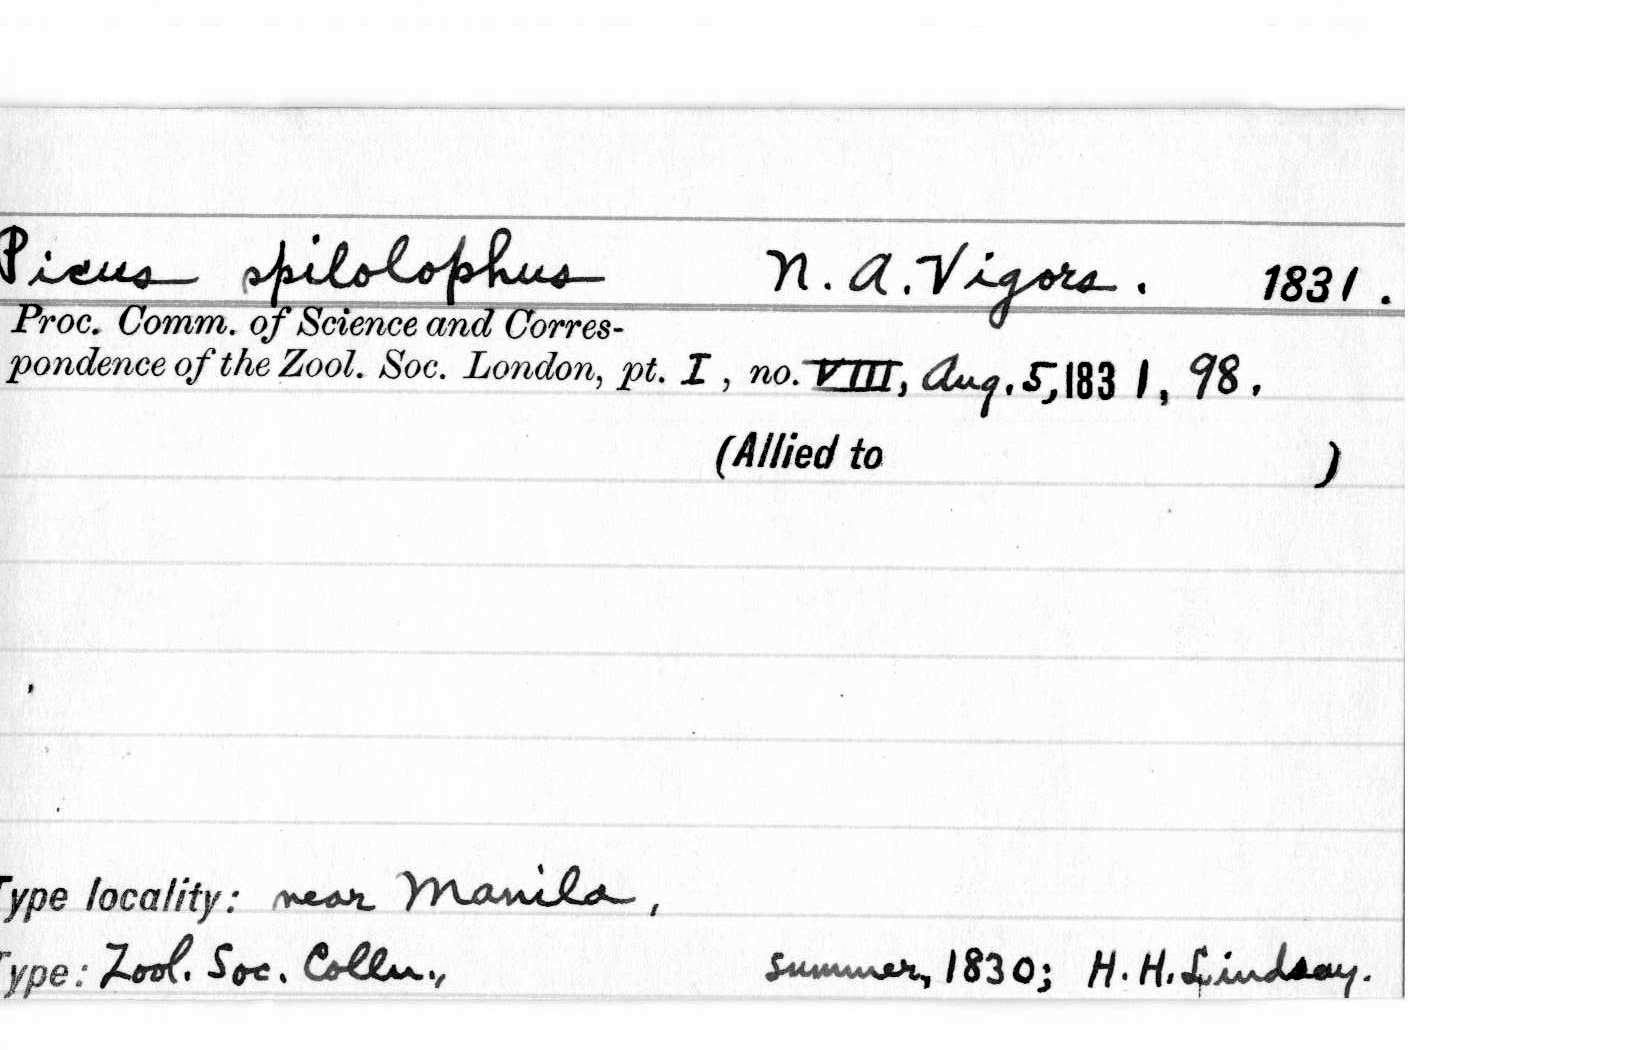 Picus spilolophus N. A. Vigors. 1831.
Proc. Comm. of Science and Corres-
pondence of the Zool. Soc. London, pt. I, no. VIII, Aug. 5, 1831, 98.
(Allied to )
Type locality: near Manila,
Type: Zool. Soc. Colln., summer, 1830; H. H. Lindsay.